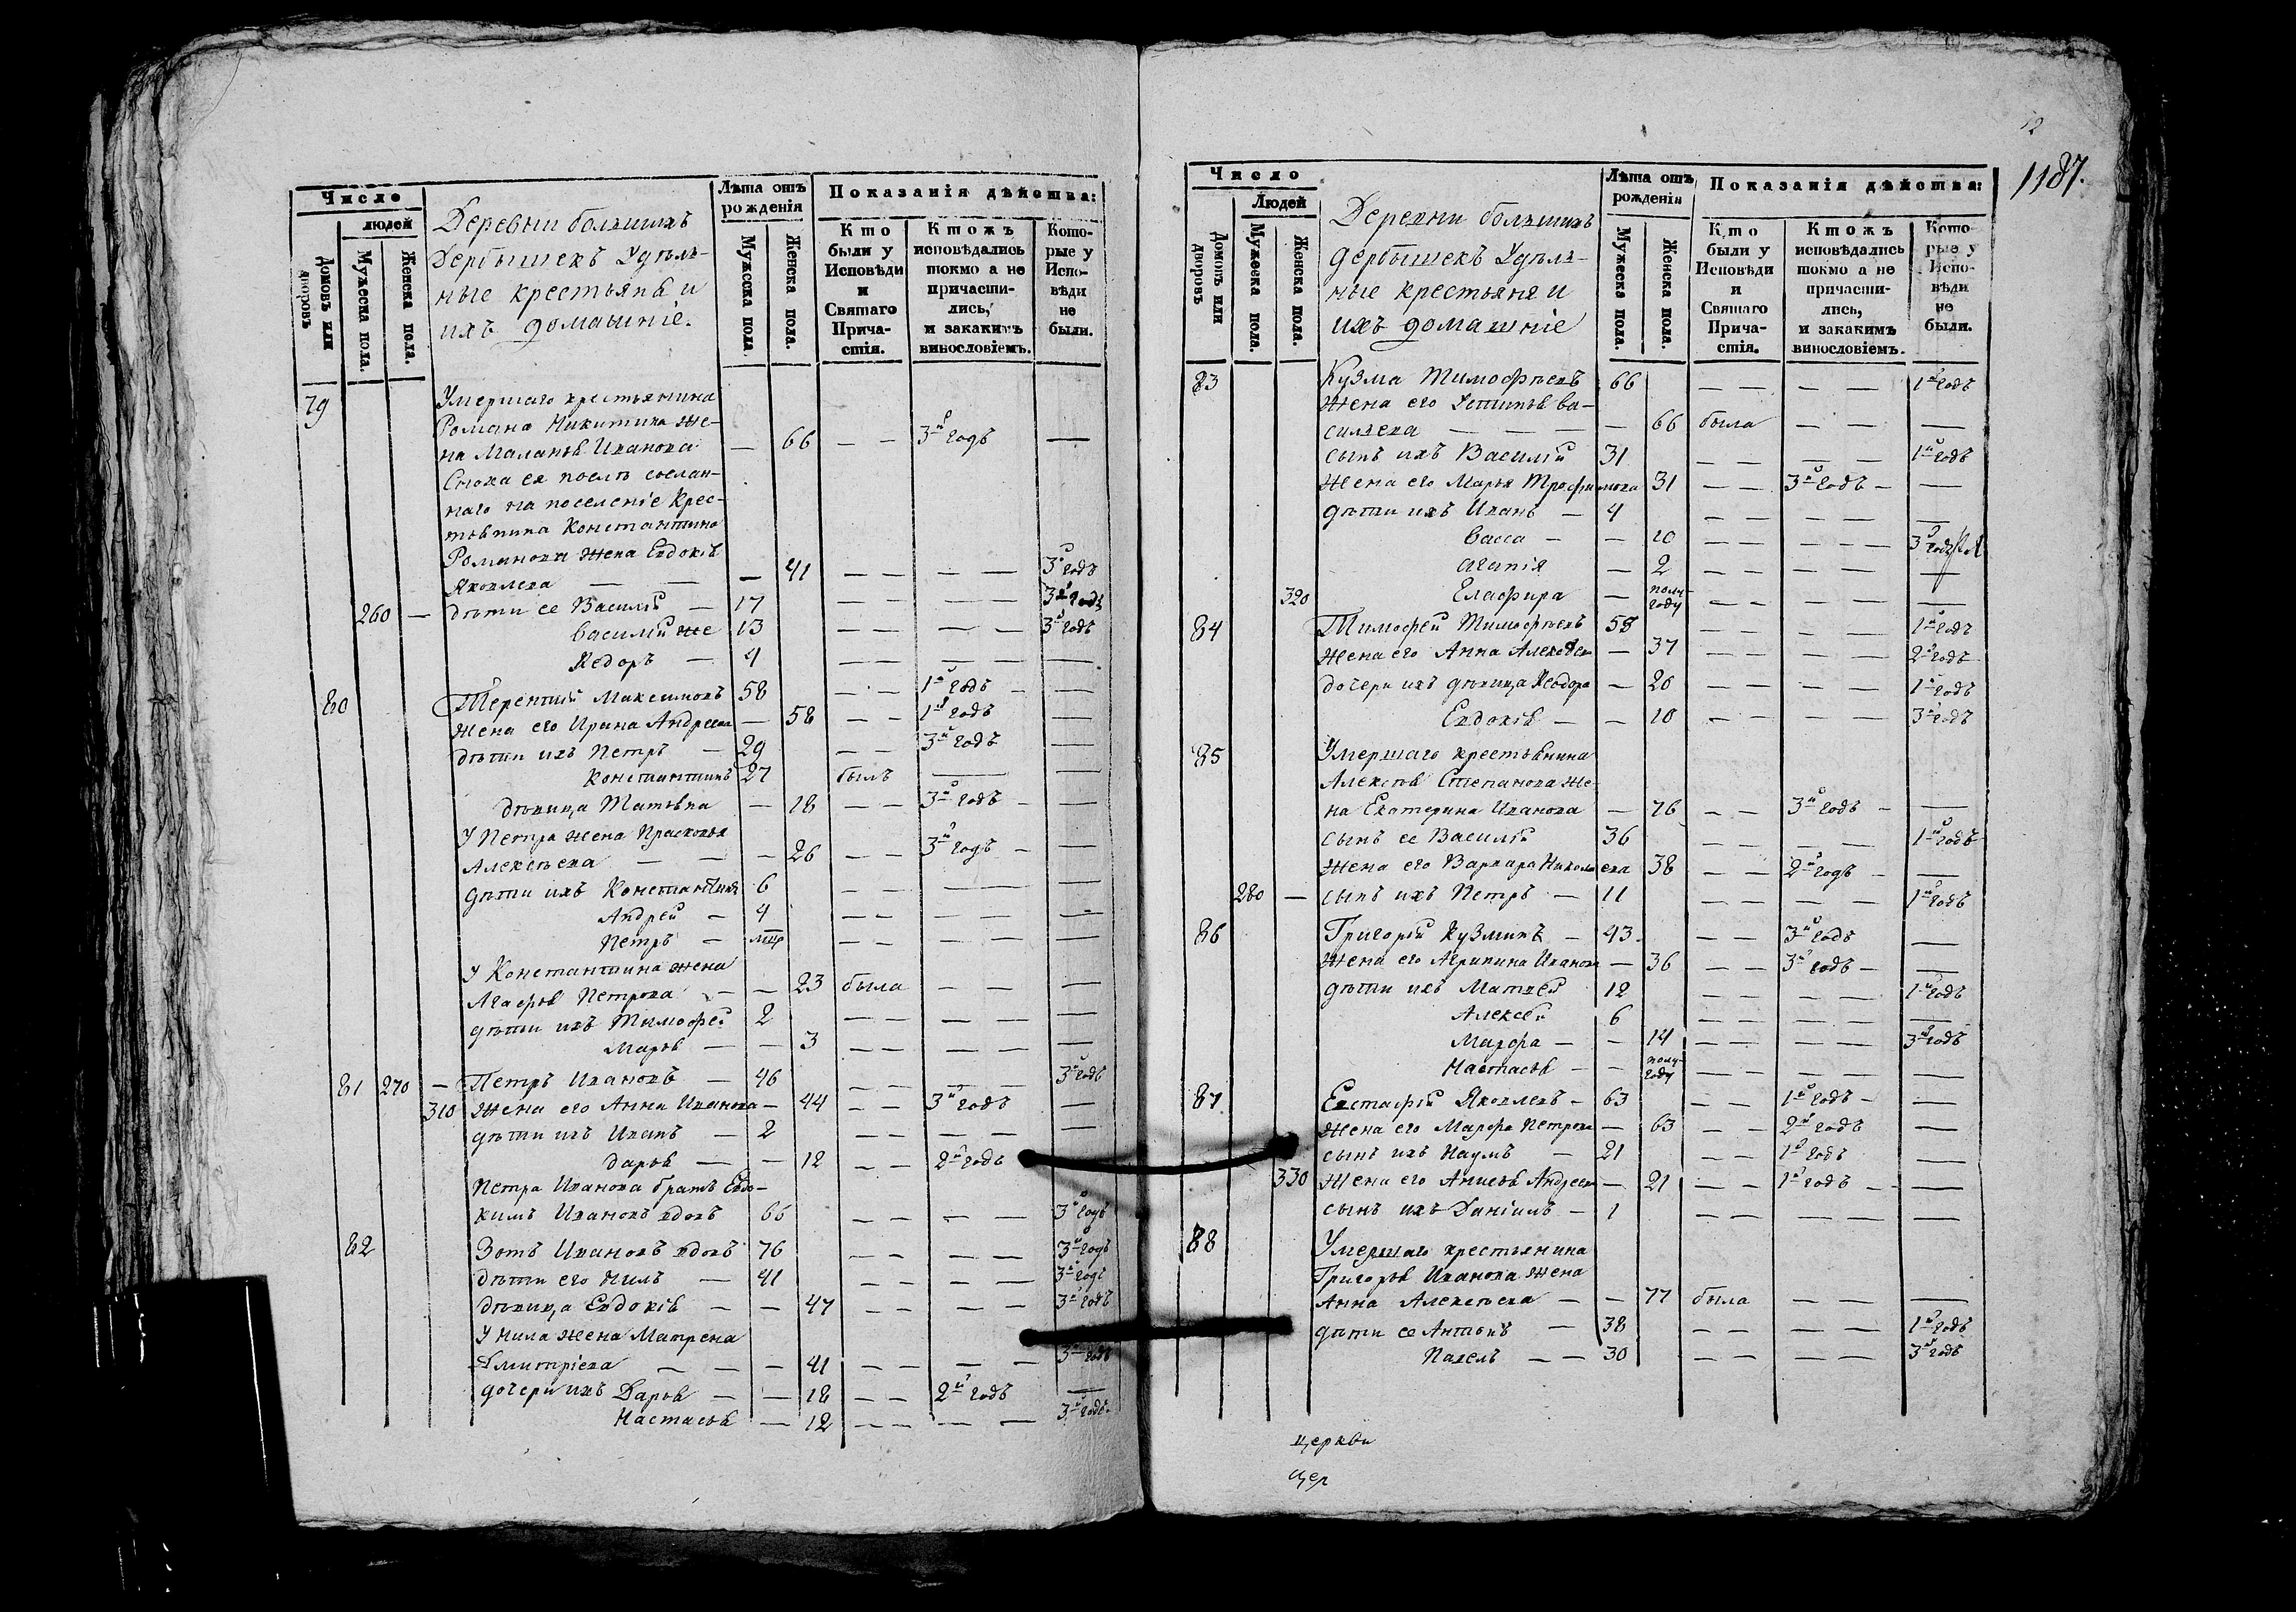 Число
людей
Домовъ или дворовъ
Мужеска пола.
Женска пола.
Деревни большихъ
Дербышекъ Удѣль-
ные крестьяна и
ихъ домашніе.
Лѣта отъ рожденія
Мужеска пола.
Женска пола.
Показанія дѣйства:
Кто были у Исповѣди и Святаго Причастія.
Ктожъ исповѣдались токмо а не причасти-лись, и закакимъ винословіемъ.
Кото-рые у Испо-вѣди не были.
79 Умершаго крестьянина
Романа Никитина же-
на Маланья Иванова — 66 — — 3й годъ —
Сноха ея послѣ сослан-
наго на поселеніе крес-
тьянина Константина
Романова жена Евдокія
Яковлева — — — 41 — — — — 3й годъ
260 — дѣти ее Василій — 17 — — — — 3й годъ
Василій же 13 — — — — 3й годъ
Ѳедоръ — 4 — — — — —
80 Терентій Максимовъ 58 — — 1й годъ — —
жена его Ирина Андреева — 58 — — 1й годъ —
дѣти ихъ Петръ — 29 — — 3й годъ —
Константинъ 27 былъ — —
дѣвица Татьяна — 18 — — 3й годъ — —
У Петра жена Прасковья
Алексѣева — — — 26 — — 3й годъ — —
дѣти ихъ Константинъ 6 — — — — —
Андрей — 4 — — — — —
Петръ — — — — — —
У Константина жена
Агафья Петрова — — 23 была — — —
дѣти ихъ Тимофей 2 — — — — —
Марья — — 3 — — — — —
81 270 — Петръ Ивановъ — 46 — — — — 3й годъ
310 жена его Анна Иванова — 44 — — 3й годъ —
дѣти ихъ Иванъ — 2 — — — — —
Дарья — — 12 — — 2й годъ
Петра Иванова братъ Евдо-
кимъ Ивановъ вдовъ 66 — — — — 3й годъ
82 Зотъ Ивановъ вдовъ 76 — — — — 3й годъ
дѣти его Нилъ — 41 — — — — 3й годъ
дѣвица Евдокія — — 47 — — — — 3й годъ
У Нила жена Матрена
Дмитріева — — — 41 — — — — 3й годъ
дочери ихъ Дарья — — 18 — — 2й годъ —
Настасья — 12 — — — — 3й годъ.
12
1187.
Число
Людей
Домовъ или дворовъ
Мужеска пола.
Женска пола.
Деревни большихъ
дербышекъ Удѣль-
ные крестьяня и
ихъ домашніе
Лѣта отъ рожденія
Мужеска пола.
Женска пола.
Показанія дѣйства:
Кто были у Исповѣди и Святаго Прича-стія.
Ктожъ исповѣдались токмо а не причасти-лись, и закакимъ винословіемъ.
Кото-рые у Испо-вѣди не были.
83 Кузма Тимофѣевъ 66 — — — — 1й годъ
жена его Устинья Ва-
сильева — — — — 66 была — — —
сынъ ихъ Василій 31 — — — — 1й годъ
жена его Марья Трофимова 31 — — 3й годъ — —
дѣти ихъ Иванъ — 4 — — — — —
Васса — — 10 — — — — 3й годъ
Агапія — 2 — — — — —
320 Елафира — полу-году — — — — —
84 Тимофей Тимофѣевъ 58 — — — — 1й годъ
жена его Анна — 37 — — — — 2й годъ
дочери ихъ дѣвица Ѳеодора — 20 — — — — 1й годъ
Евдокія — — 10 — — — — 3й годъ
85 Умершаго крестьянина
Алексѣя Степанова же-
на Екатерина Иванова — 76 — — 3й годъ — —
сынъ ее Василій 36 — — — — 1й годъ
жена его Варвара Николаева 38 — — 2й годъ — —
280 — сынъ ихъ Петръ — 11 — — — — 1й годъ
86 Григорій Кузминъ — 43 — — 3й годъ —
жена его Агрипина Иванова — 36 — — 3й годъ — —
дѣти ихъ Матвей 12 — — — — 1й годъ
Алексей 6 — — — — —
Марфа — — 14 — — — — 3й годъ
Настасья — — полу-году — — — — —
87 Евстафій Яковлевъ — 63 — — 1й годъ — —
жена его Марфа Петрова — 63 — — 2й годъ —
сынъ ихъ Наумъ — 21 — — 1й годъ —
330 жена его Анисья Андреева — 21 — — 1й годъ — —
сынъ ихъ Даніилъ — 1 — — — — —
88 Умершаго крестьянина
Григорья Иванова жена
Анна Алексѣева — — 77 была — — —
дѣти ее Антонъ — 38 — — — — 1й годъ
Павелъ — — 30 — — — — 3й годъ
церкви
цер